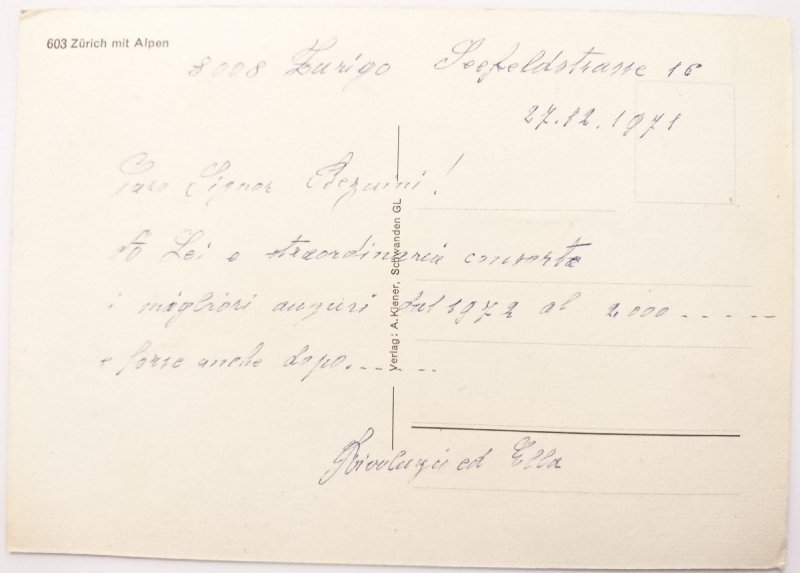 603 Zürich mit Alpen
8008 Zurigo Seefeldstrasse 16
27.12.1971
Caro Signor !
A Lei e straordinaria consorte
i migliori auguri dal 1972 al 2000 . . . . .
e forse anche dopo . . . . .
ed Ella
Verlag: A. Kiener, Schwanden GL